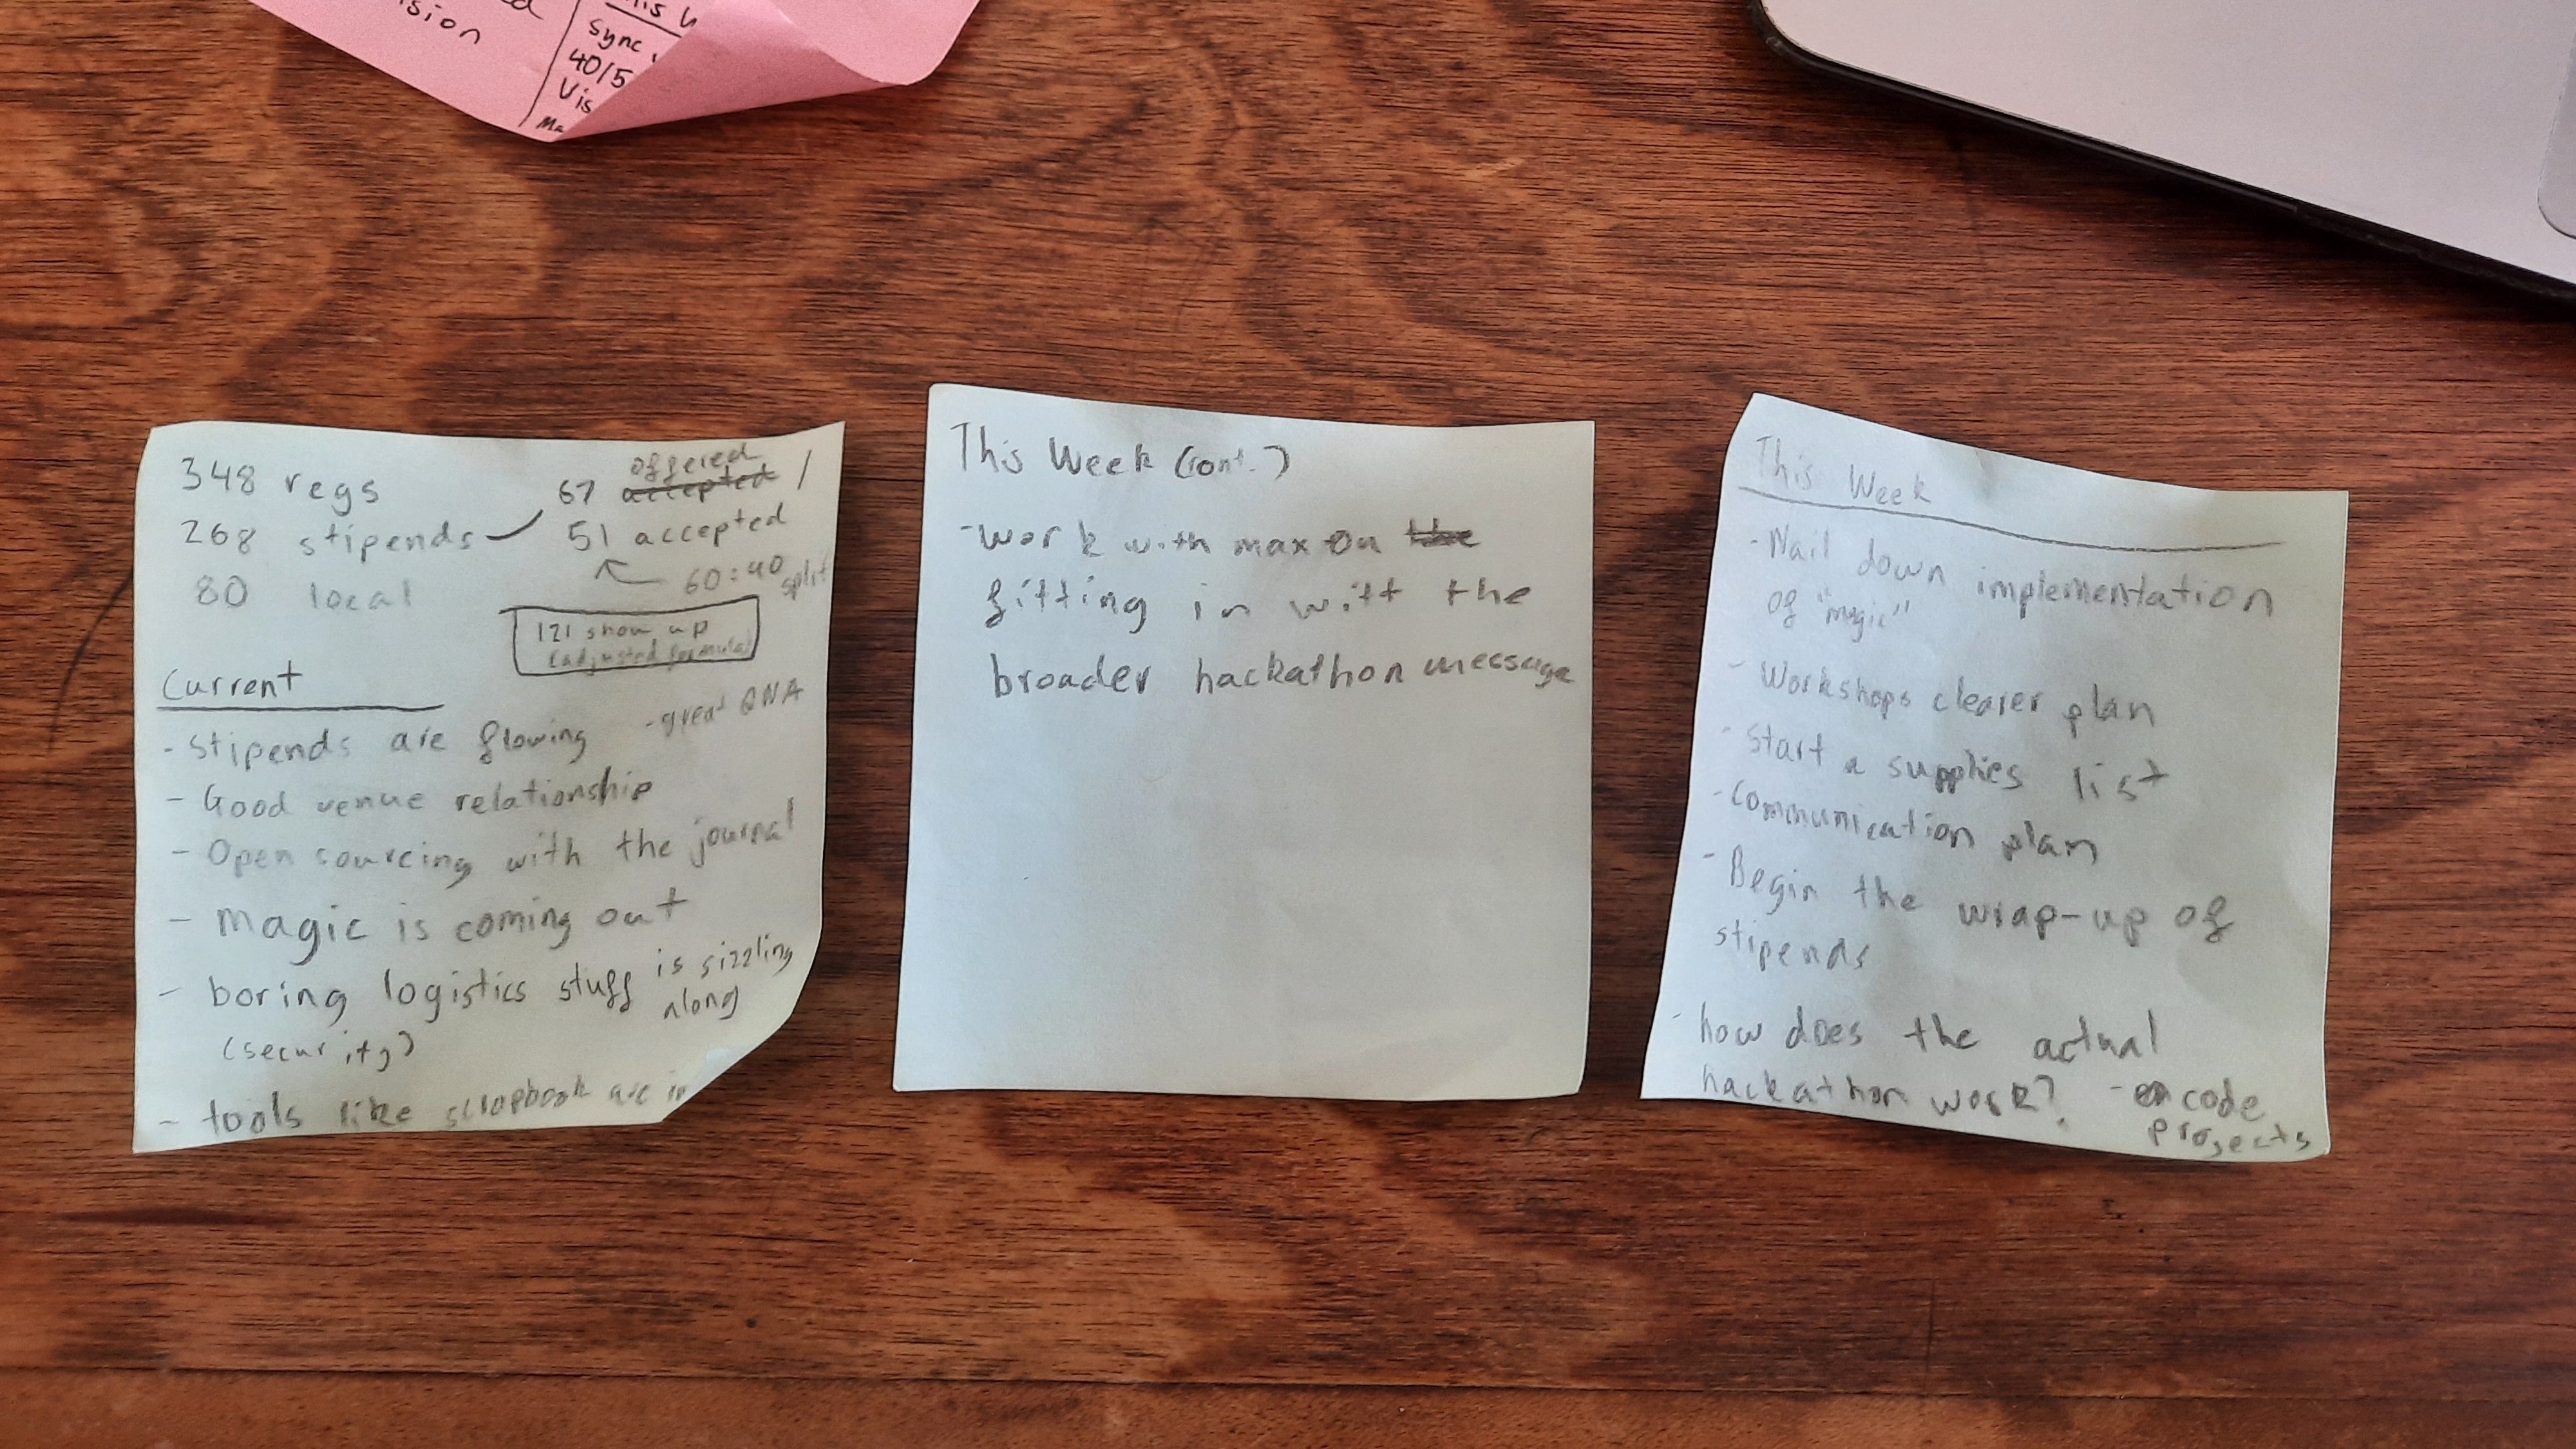 ision
sync
40/5
Vis
348 regs
268 stipends
80 local
offered
67 accepted /
51 accepted
60:40 split
121 show up
(adjusted formula)
Current
- stipends are flowing - great QNA
- Good venue relationship
- Open sourcing with the journal
- magic is coming out
- boring logistics stuff is sizzling
along
(security)
- tools like scrapbook are in
This Week (cont.)
- work with max on the
fitting in witt the
broader hackathon message
This Week
- Nail down implementation
of "magic"
- Workshops clearer plan
- Start a supplies list
- Communication plan
- Begin the wrap-up of
stipends
- how does the actual
hackathon work? - code
projects